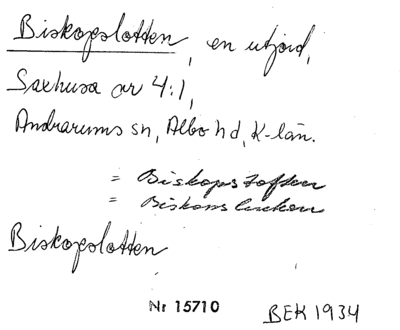 Biskopslotten, en utjord,
Saxhusa nr 4:1,
Andrarums sn, Albo hd, K-län.
= Biskopstoften
= Biskops
Biskopslotten
Nr 15710
BEK 1934